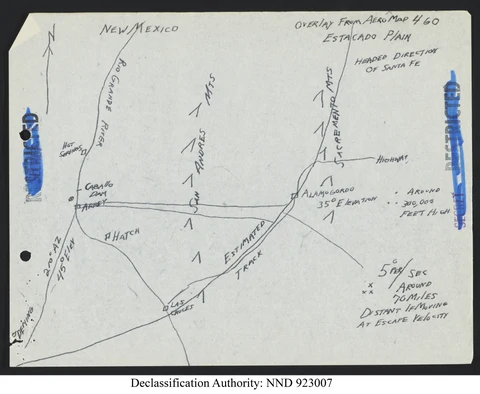 NEW MEXICO
OVERLAY FROM AERO MAP 460
ESTACADO PLAIN
HEADED DIRECTION
OF SANTA FE
RIO GRANDE RIVER
SAN ANDRES MTS
SACREMENTO MTS
RESTRICTED
HOT
SPRINGS
HIGHWAY
CABALLO
DAM
ARREY
ALAMOGORDO
35° ELEVATION
AROUND
300,000
FEET HIGH
HATCH
ESTIMATED
TRACK
45° ELV
DEMING
LAS
CRUCES
5° PER/SEC
AROUND
70 MILES
DISTANT IF MOVING
AT ESCAPE VELOCITY
Declassification Authority: NND 923007